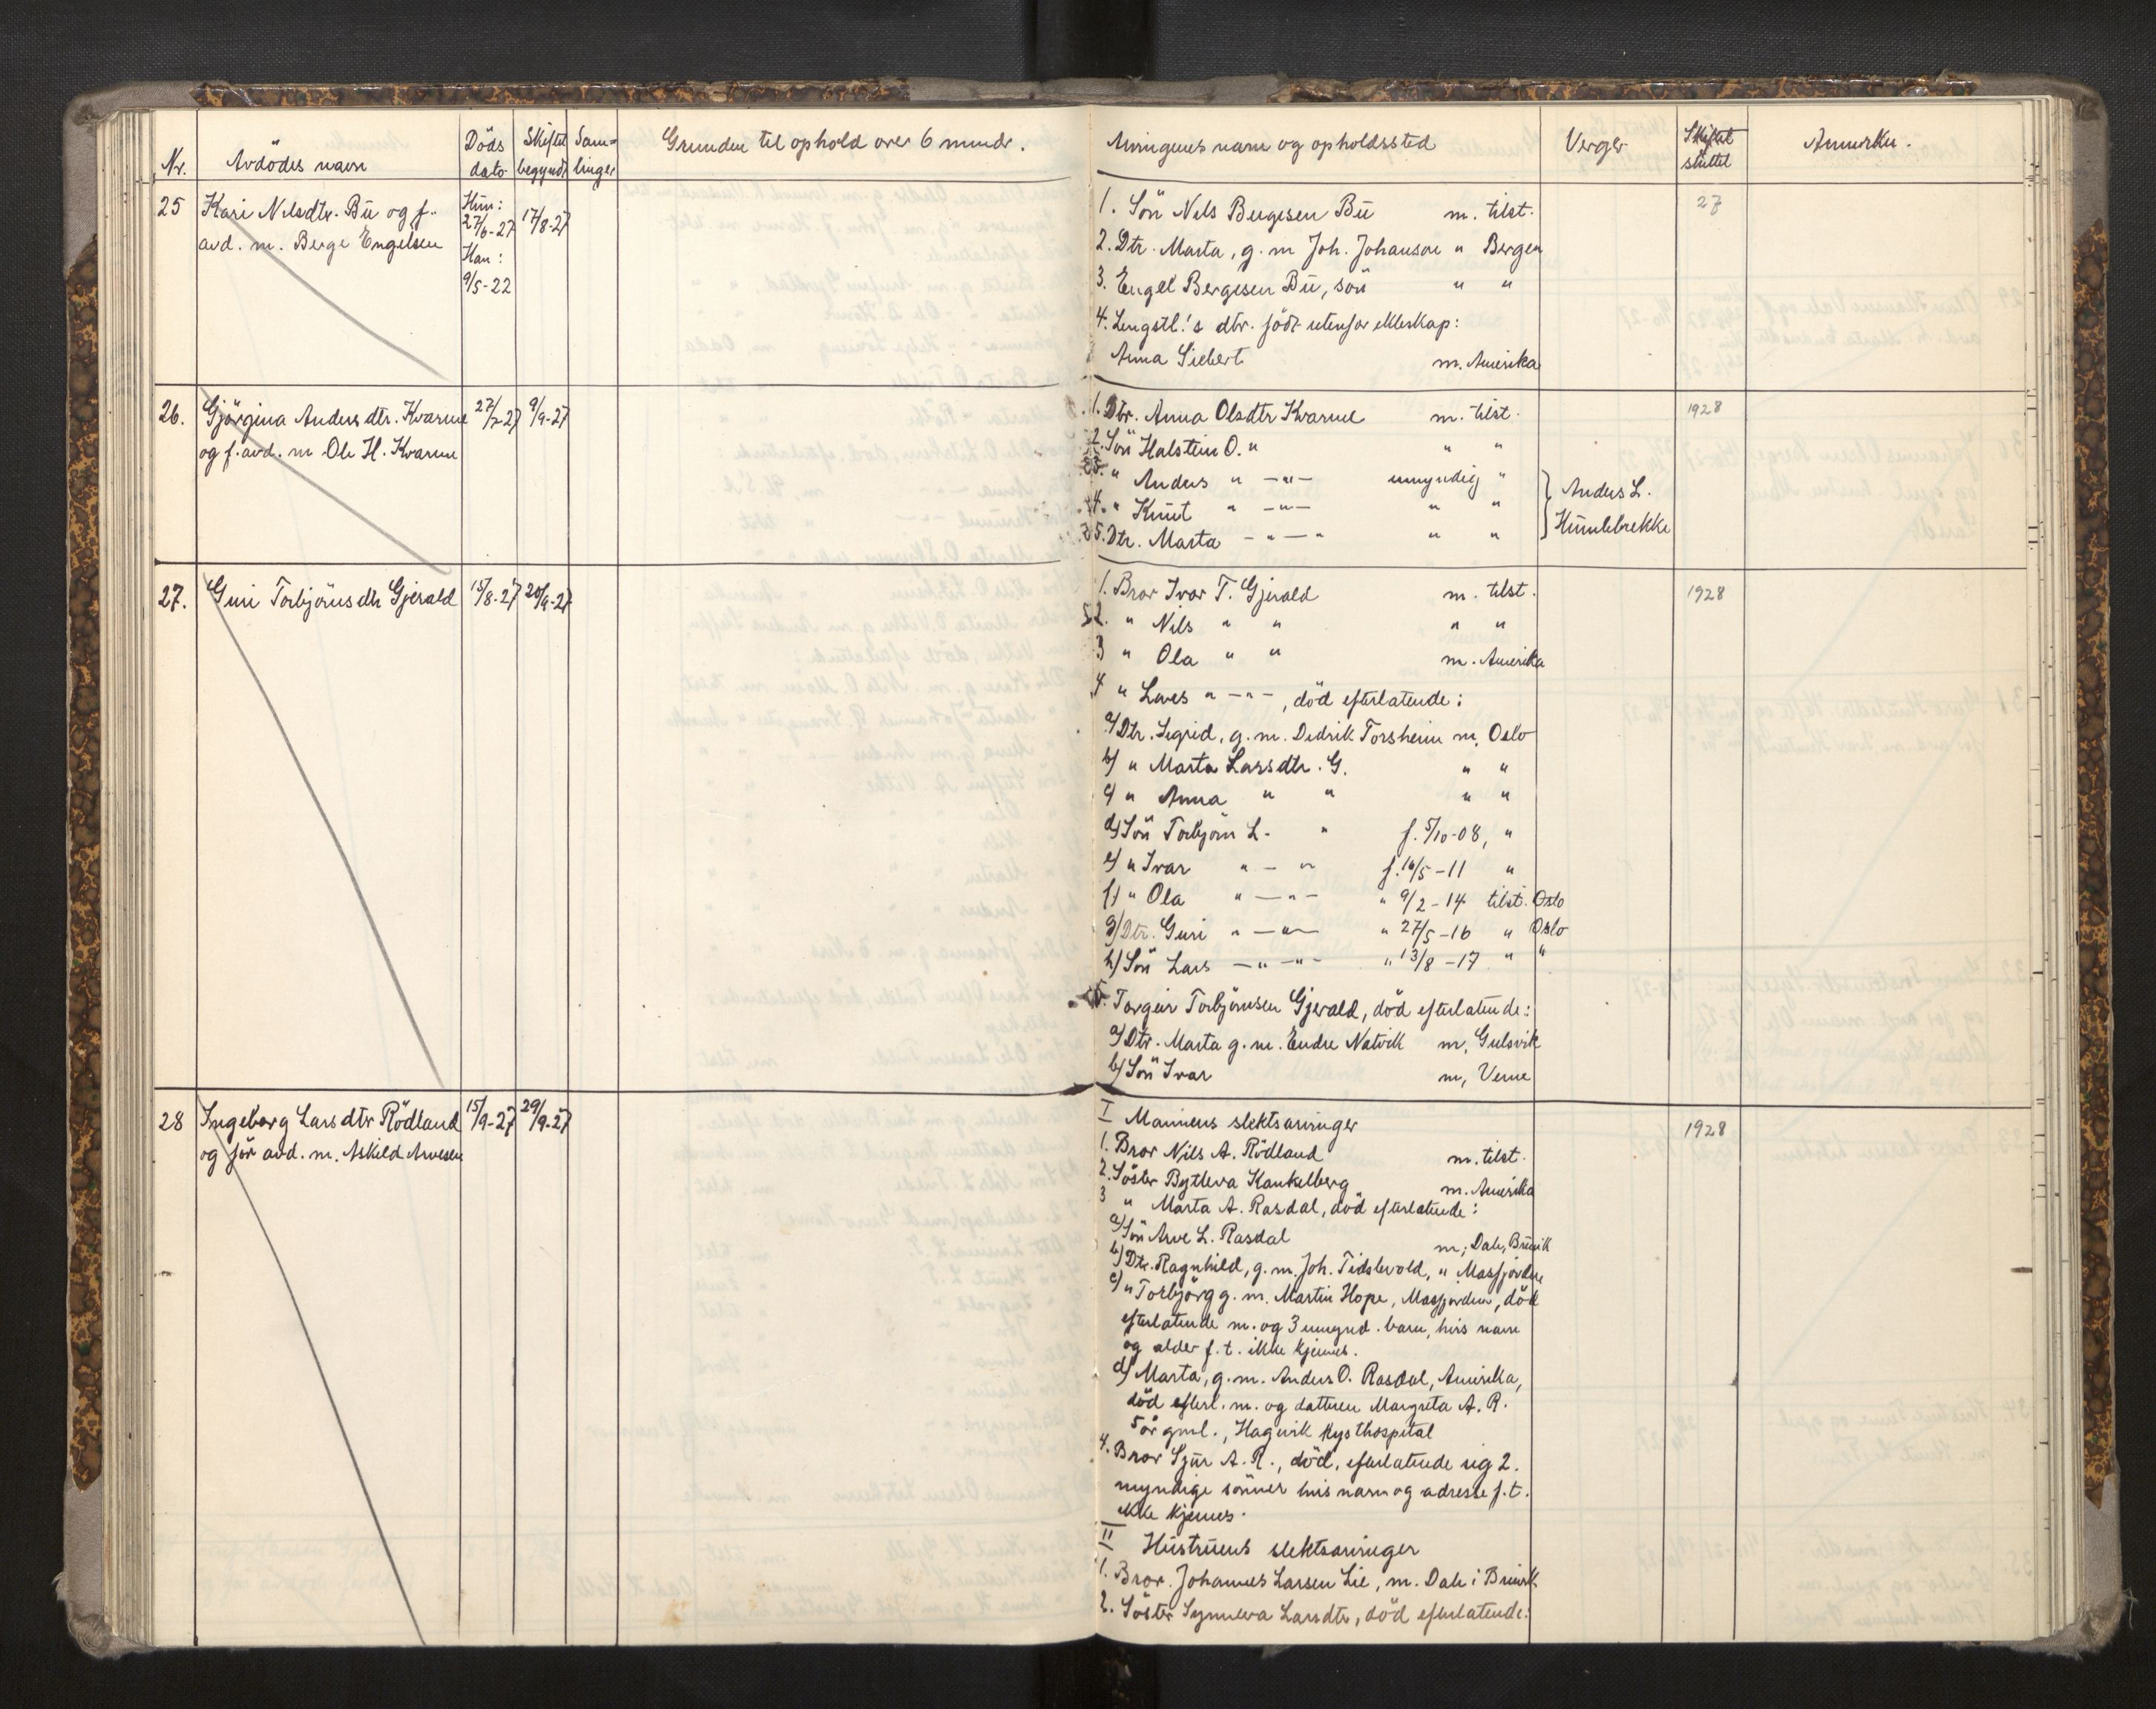 Nr. Avdödes navn Döds dato Skiftet begyndt Sam=linger Grunden til ophold over 6 mndr. Arvingenes navn og opholdssted Verger Skiftet sluttet Anmerkn.
25 Kari Nilsdtr. Bü og f. Hün: 27/6-27 17/8-27
avd. m. Berge Engelsen Han: 9/5-22
1. Sön Nils Bergesen Bü m. tilst. 27
2. Dtr. Marta, g. m Joh. Johanson " Bergen
3. Engel Bergesen Bü, sön " "
4. Lengstl.'s dtr. födt utenfor ekteskap:
Anna Siebert m. Amerika
26. Gjörgina Andersdtr. Kvarme 27/7-27 9/9-27
og f. avd. m Ole H. Kvarme
1. Dtr. Anna Olsdtr Kvarme m. tilst. 1928
2. Sön Halstein O. " " "
3. " Anders " —"— umyndig "
4. " Knüt " —"— " "
5. Dtr. Marta - " — " " "
} Anders L.
Hümlebrekke
27. Guri Torbjörnsdtr Gjerald 15/8-27 20/9-27
1. Bror Ivar T. Gjerald m. tilst. 1928
2. " Nils " " " "
3 " Ola " " m. Amerika
4 " Lars " —"—, död efterlatende:
a) Dtr. Sigrid, g. m. Dedrik Torsheim m, Oslo
b) " Marta Larsdtr. G. " "
c) " Anna " " " "
d) Sön Torbjörn L. " f. 5/10-08, "
e) " Ivar " — " f. 16/5-11 "
f) " Ola " —"— " 9/2-14 tilst. Oslo
g) Dtr. Guri " —"— " 27/5-16 " Oslo
h) Sön Lars —"—"— " 13/8-17 " "
5. Torgeir Torbjörnsen Gjerald, död efterlatende:
a) Dtr. Marta g. m. Endre Natvik m, Gulsvik
b) Sön Ivar m,
28 Ingeborg Larsdtr Rödland 15/9-27 29/9-27
og för avd. m. Askild Arvesen
I Mannens slektsarvinger 1928
1. Bror Nils A. Rödland m. tilst.
2. Söster Bytleva Kankelberg m. Amerika
3 " Marta A. Rasdal, död efterlatende:
a) Sön Arve L. Rasdal m, Dale, Brüvik
b) Dtr. Ragnhild, g. m. Joh. Tidslevold, " Masfjorden
c) " Torbjörg g. m. Martin Hope, Masfjorden, död
efterlatende m. og 3 umynd. barn, hvis navn
og alder f. t. ikke kjennes.
d) Marta, g. m. Anders O. Rasdal, Amerika,
död efterl. m. og datteren Margreta A. R.
5 år gml., Hagevik kysthospital
4. Bror Sjür A. R., död, efterlatende sig 2.
myndige sönner hvis navn og adresse f. t.
ikke kjennes.
II Hüstrüens slektsarvinger
1. Bror. Johannes Larsen Lie, m. Dale i Brüvik
2. Söster Synneva Larsdtr, död efterlatende: